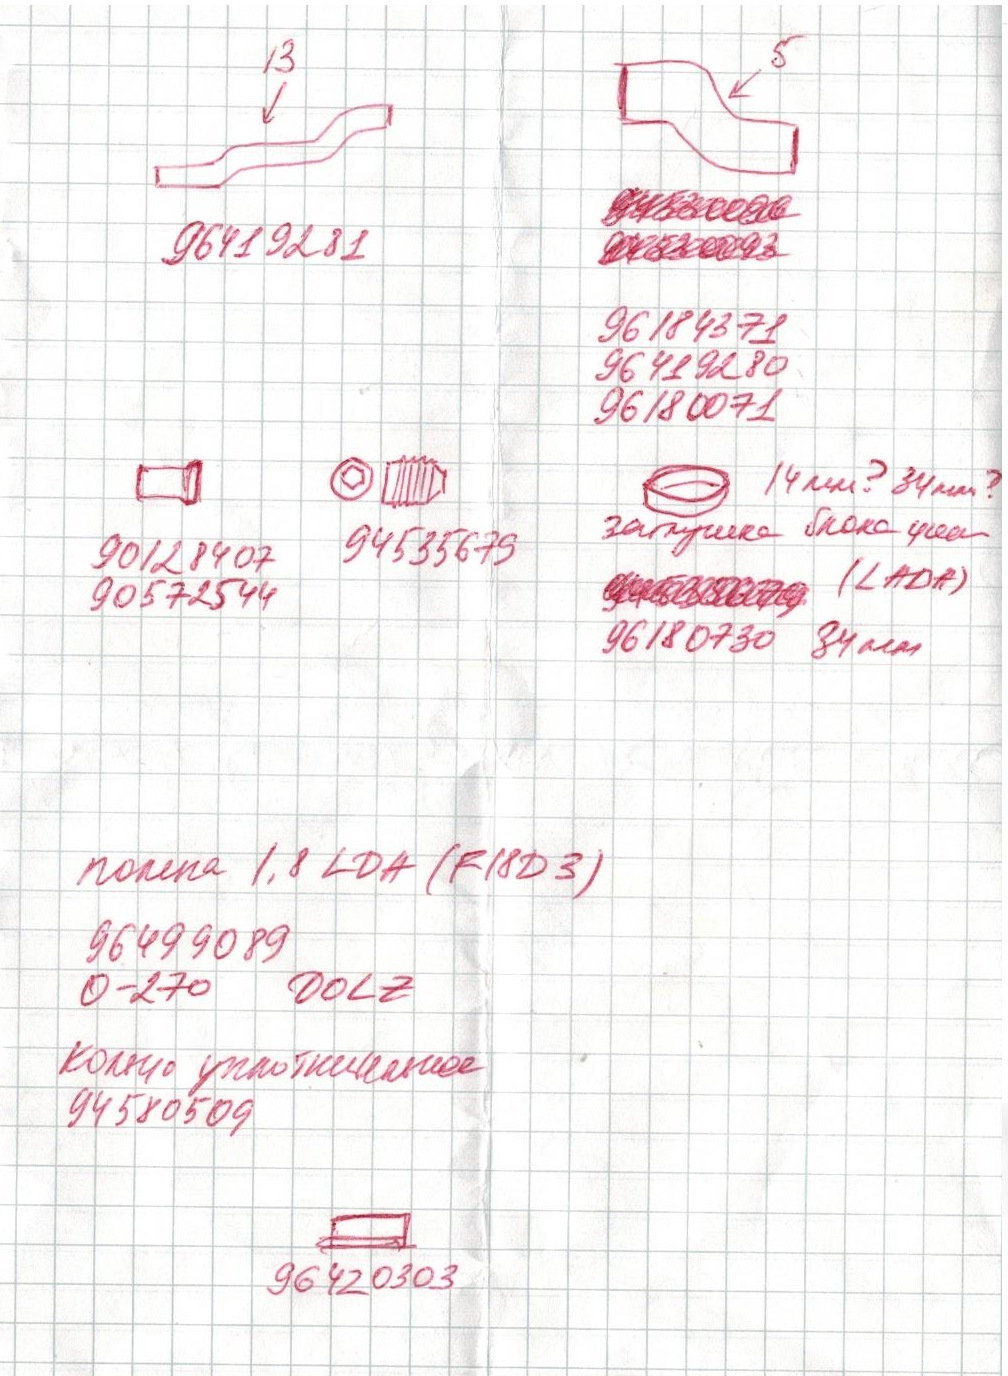 13
96419281
5
96184371
96419280
96180071
90128407
90572544
94535679
14мм? 34мм?
заглушка блока
(LADA)
96180730 34мм
помпа 1,8 LDA (F18D3)
96499089
0-270 DOLZ
Кольцо уплотнительное
94580509
96420303